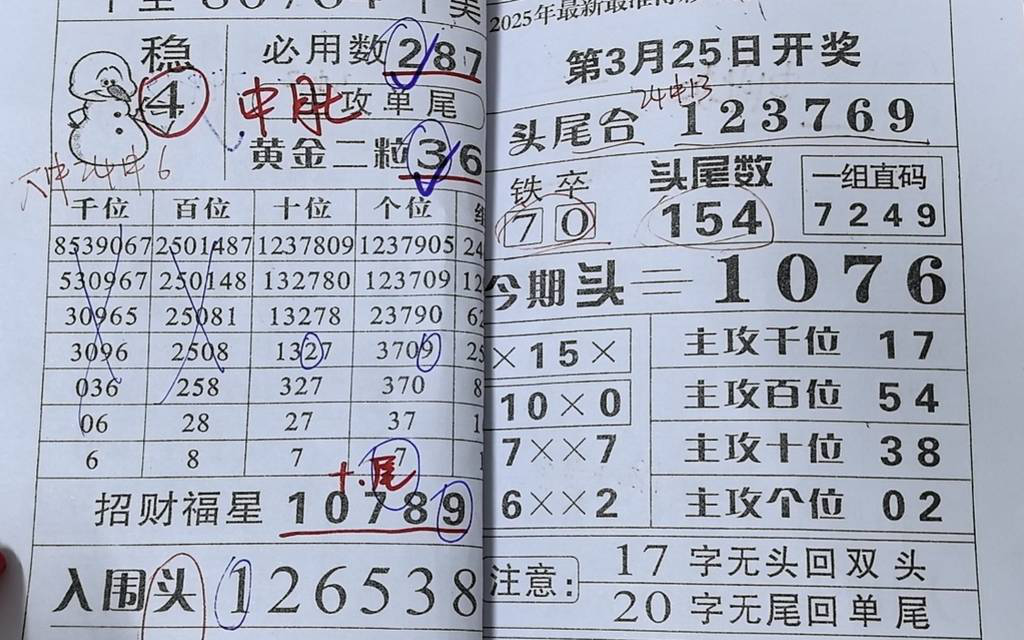 稳
4
必用数 287
主攻单尾
中肖
黄金二粒 36
千位 百位 十位 个位
8539067 2501487 1237809 1237905 24
530967 250148 132780 123709 12
30965 25081 13278 23790 62
3096 2508 1327 3709 25
036 258 327 370 8
06 28 27 37 1
6 8 7 7
十.尾
招财福星 10789
入围头 126538
2025年最新最准
第3月25日开奖
24中13
头尾合 123769
铁卒
70
头尾数
154
一组直码
7249
今期头=1076
×15×
10×0
7××7
6××2
主攻千位 17
主攻百位 54
主攻十位 38
主攻个位 02
注意:
17字无头回双头
20字无尾回单尾